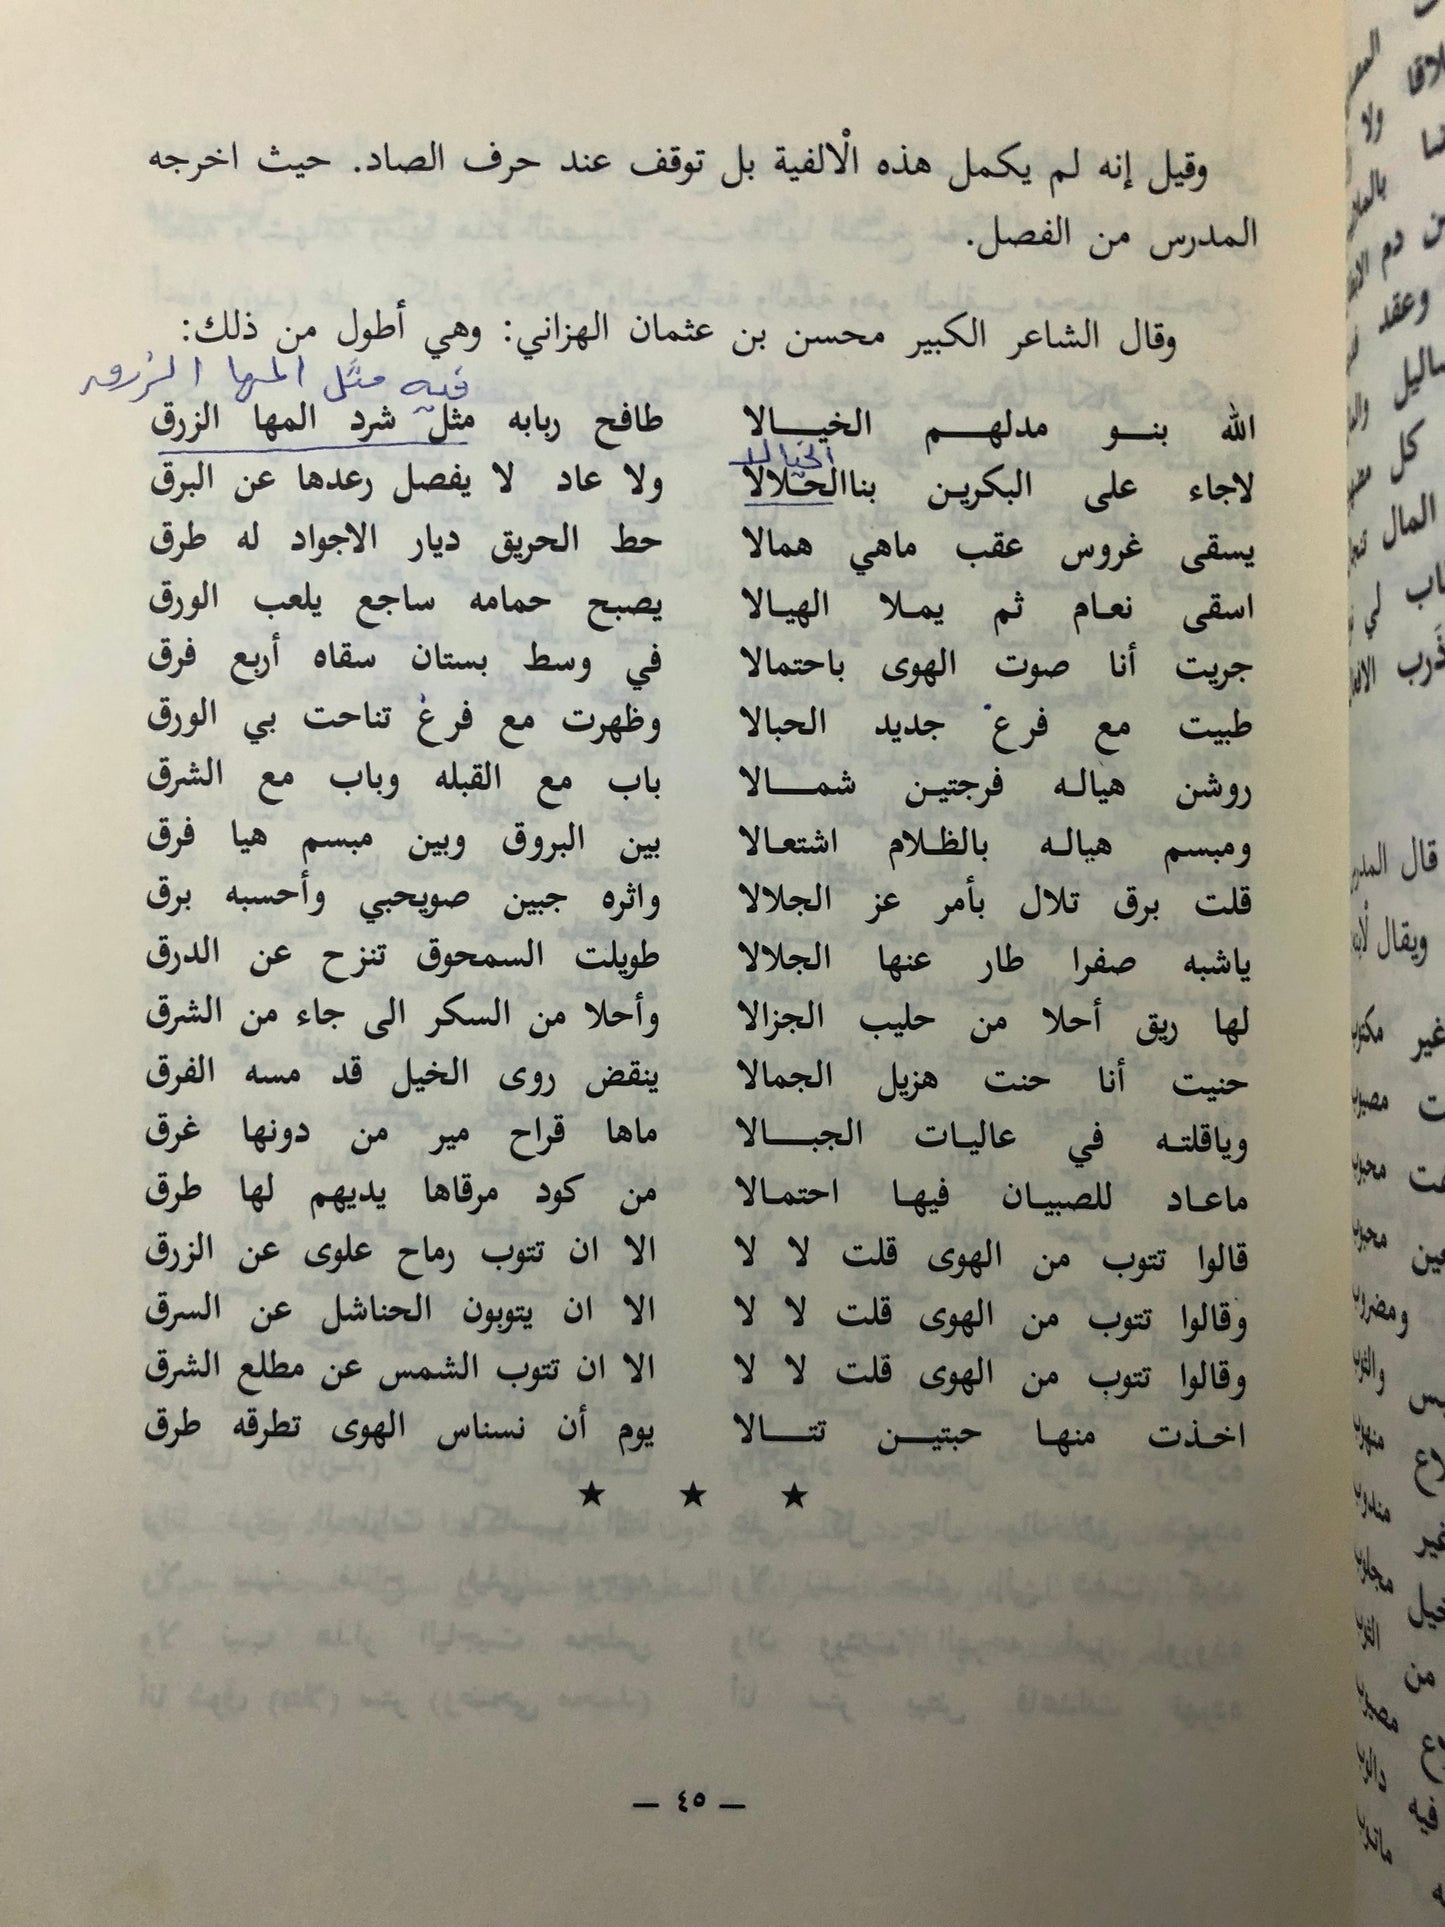 وقيل إنه لم يكمل هذه الْالفية بل توقف عند حرف الصاد. حيث اخرجه
المدرس من الفصل.
وقال الشاعر الكبير محسن بن عثمان الهزاني: وهي أطول من ذلك:
فيه مثل المها الزرق
الله بنو مدلهم الخيالا طافح ربابه مثل شرد المها الزرق
الخيالا
لاجاء على البكرين بناالحلالا ولا عاد لا يفصل رعدها عن البرق
يسقى غروس عقب ماهي همالا حط الحريق ديار الاجواد له طرق
اسقى نعام ثم يملا الهيالا يصبح حمامه ساجع يلعب الورق
جريت أنا صوت الهوى باحتمالا في وسط بستان سقاه أربع فرق
طبيت مع فرع جديد الحبالا وظهرت مع فرغ تناحت بي الورق
روشن هياله فرجتين شمالا باب مع القبله وباب مع الشرق
ومبسم هياله بالظلام اشتعالا بين البروق وبين مبسم هيا فرق
قلت برق تلال بأمر عز الجلالا واثره جبين صويحبي وأحسبه برق
ياشبه صفرا طار عنها الجلالا طويلت السمحوق تنزح عن الدرق
لها ريق أحلا من حليب الجزالا وأحلا من السكر الى جاء من الشرق
حنيت أنا حنت هزيل الجمالا ينقض روى الخيل قد مسه الفرق
وياقلته في عاليات الجبالا ماها قراح مير من دونها غرق
ماعاد للصبيان فيها احتمالا من كود مرقاها يديهم لها طرق
قالوا تتوب من الهوى قلت لا لا الا ان تتوب رماح علوى عن الزرق
وقالوا تتوب من الهوى قلت لا لا الا ان يتوبون الحناشل عن السرق
وقالوا تتوب من الهوى قلت لا لا الا ان تتوب الشمس عن مطلع الشرق
اخذت منها حبتين تتالا يوم أن نسناس الهوى تطرقه طرق
★ ★ ★
— ٤٥ —